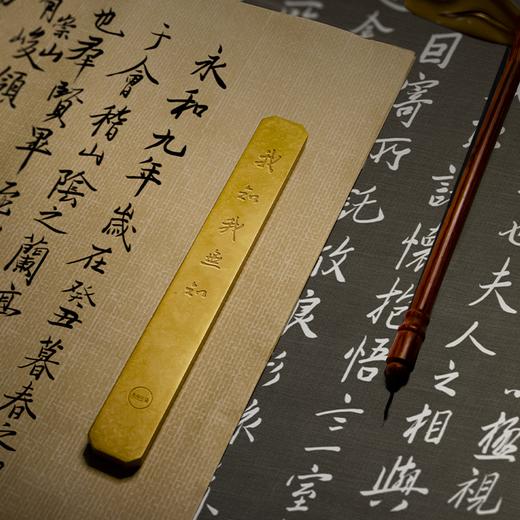 以極視
也夫人之相與
諸懷抱悟言一室
因寄所託放浪形
我知我無知
永和九年歲在癸丑暮春之
于會稽山陰之蘭亭
也羣賢畢至
有崇山峻領